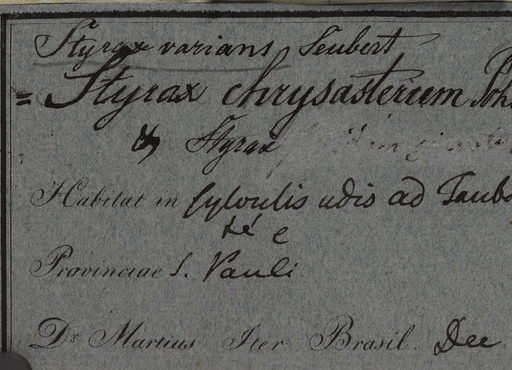 Styrax varians Seubert
= Styrax chrysastericum Poh
Styrax
Habitat in sylvulis udis ad Taub
té e
Provinciae S. Pauli
Dr. Martius Iter Brasil. Dec